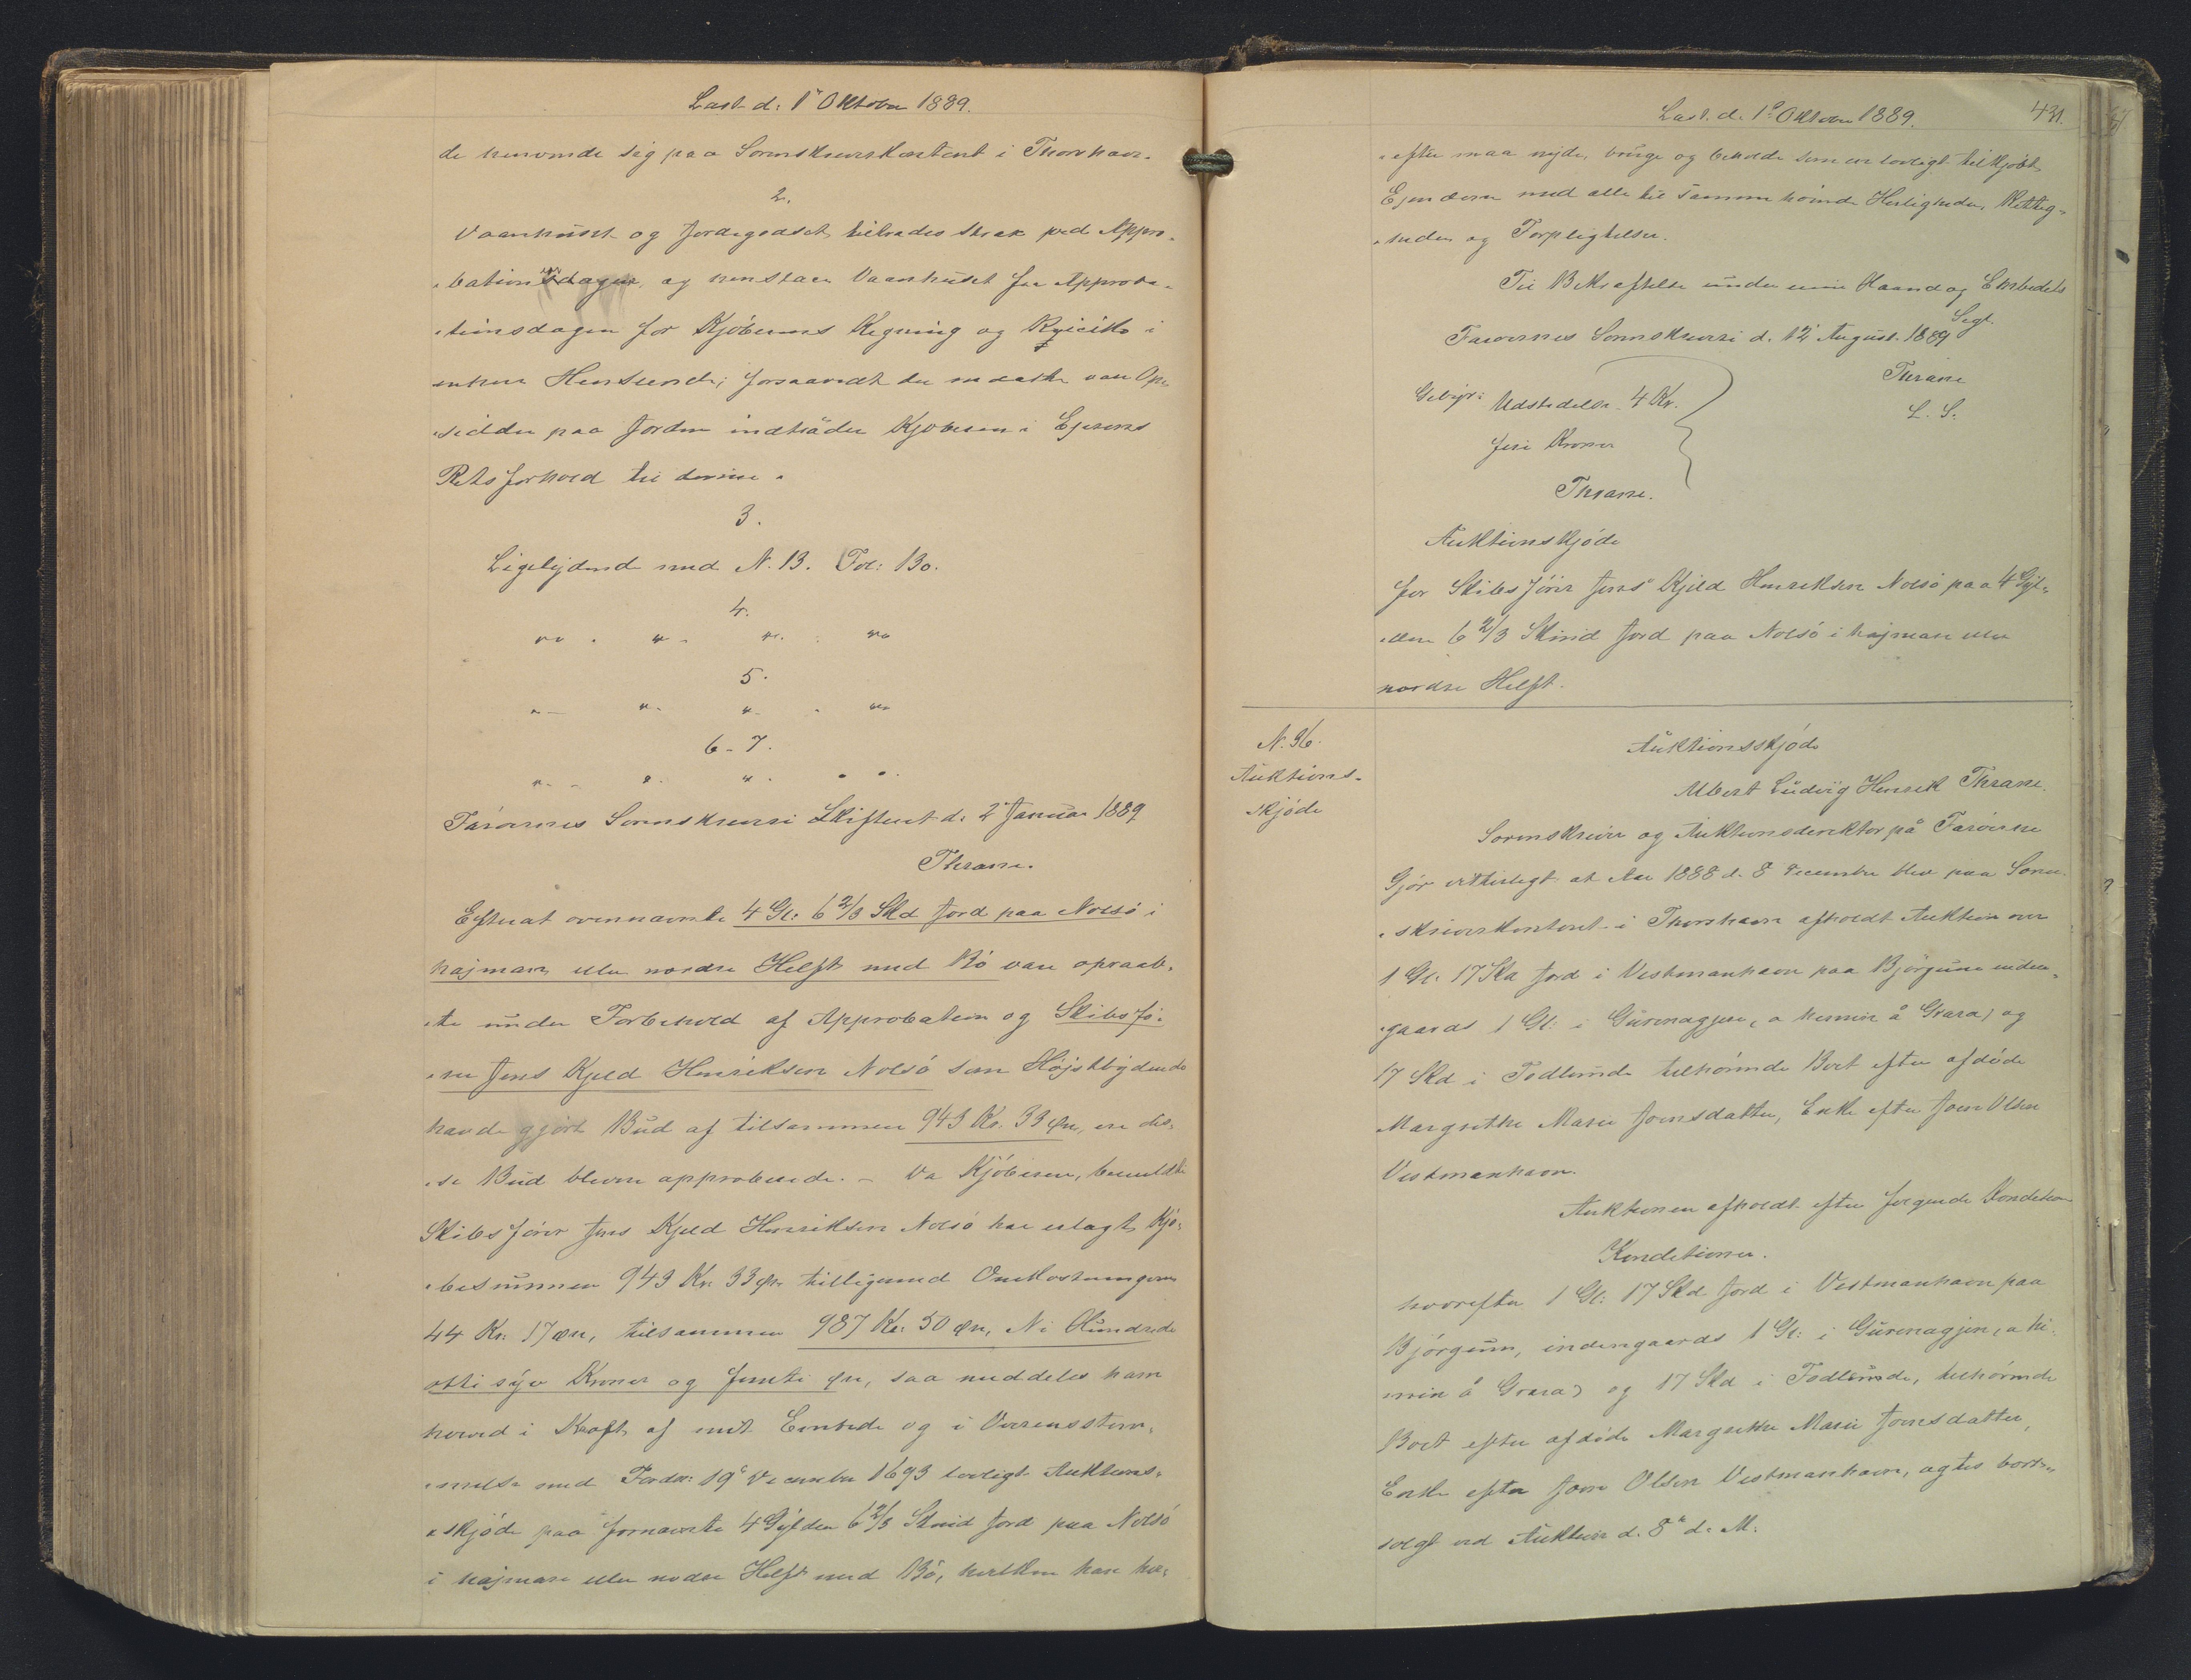 Læst d: 1' Oktober 1889.
de henvende sig paa Sorenskriverkontoret i Thorshavn.
2.
Vaanhuset og Jordegodset tiltrædes strax ved Appro-
-bationsdagen, og henstaar Vaanhuset fra Approba-
-tionsdagen for Kjöberens Regning og Risiko i
enhver Henseende; forsaavidt der maatte være Op-
-sidder paa Jorden indtræder Kjøberen i Ejerens
Retsforhold til denne.
3.
Ligelydende med N. 13. Fol: 130.
4.
" " " "
5.
" " " "
6-7.
" " " "
Færøernes Sorenskriveri Skifteret d: 2' Januar 1889
Thrane.
Efterat ovennævnte 4 Gl: 6 2/3 Skd Jord paa Nolsö i
hajmare eller nordre Helft med Bö vare opraab-
-te under Forbehold af Approbation og Skibsfö-
-rer Jens Kjeld Henriksen Nolsö som Höjstbydende
havde gjort Bud af tilsammen 943 Kr. 33 Øre, ere dis-
-se Bud blevne approberede. - Da Kjöberen, bemeldte
Skibsförer Jens Kjeld Henriksen Nolsö har erlagt Kjö-
-besummen 943 Kr. 33 Øre tilligemed Omkostningerne
44 Kr. 17 Øre, tilsammen 987 Kr: 50 Øre, Ni Hundrede
otti syv Kroner og femti Øre, saa meddeles ham
herved i Kraft af mit Embede og i Overensstem-
-melse med Fordn: 19' December 1693 lovligt Auktions-
-skjöde paa fornævnte 4 Gylden 6 2/3 Skind Jord paa Nolsö
i hajmare eller nodre Helft med Bö, hvilken han her-
Læst. d. 1' Oktober 1889.
431.
-efter maa nyde, bruge og beholde som en lovligt tilkjøbt
Ejendom med alle til samme hörende Herligheder, Rettig-
-heder og Forpligtelser.
Til Bekræftelse under min Haand og Embedets
Segl.
Færoernes Sorenskriveri d. 12' August 1889
Thrane
L. S.
Gebyr:
Udstedelse 4 Kr.
fire Kroner
Thrane.
Auktionskjöde
for Skibsförer Jens Kjeld Henriksen Nolsö paa 4 Gyl-
-den 6 2/3 Skind Jord paa Nolsö i hajmare eller
nordre Helft.
N. 36.
Auktions-
skjöde
Auktionsskjöde
Albert Ludvig Henrik Thrane.
Sorenskriver og Auktionsdirektor på Færöerne
Gjör vitterligt at Aar 1888 d. 8 December blev paa Soren-
-skriverkontoret i Thorshavn afholdt Auktion over
1 Gl. 17 Skd Jord i Vestmanhavn paa Björgum inden-
-gaards 1 Gl: i Gurenagjen, a hemin å Grara) og
17 Skd i Todlunde tilhörende Boet efter afdöde
Margrethe Marie Joensdatter, Enke efter Joen Olsen
Vestmanhavn.
Auktionen afholdt efter følgende Kondition
Konditioner.
hvorefter 1 Gl: 17 Skd Jord i Vestmanhavn paa
Björgum, indengaards 1 Gl: i Gurenagjen, a he-
min å Grara) og 17 Skd i Todlunde, tilhörende
Boet efter afdöde Margrethe Marie Joensdatter,
Enke efter Joen Olsen Vestmanhavn, agtes bort-
solgt ved Auktion d. 8' d. M.